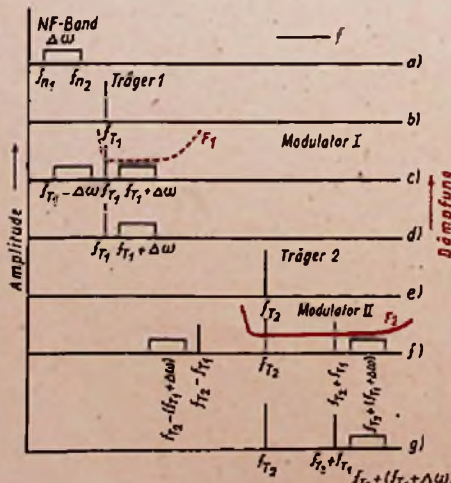 NF-Band
Δω
f
f_n1 f_n2
a)
Träger 1
b)
f_T1
Modulator I
F_1
c)
f_T1-Δω f_T1 f_T1+Δω
d)
f_T1 f_T1+Δω
Träger 2
e)
f_T2
Modulator II
F_2
f)
f_T2-(f_T1+Δω)
f_T2-f_T1
f_T2
f_T2+f_T1
f_T2+(f_T1+Δω)
g)
f_T2 f_T2+f_T1
f_T2+(f_T1+Δω)
Amplitude
Dämpfung